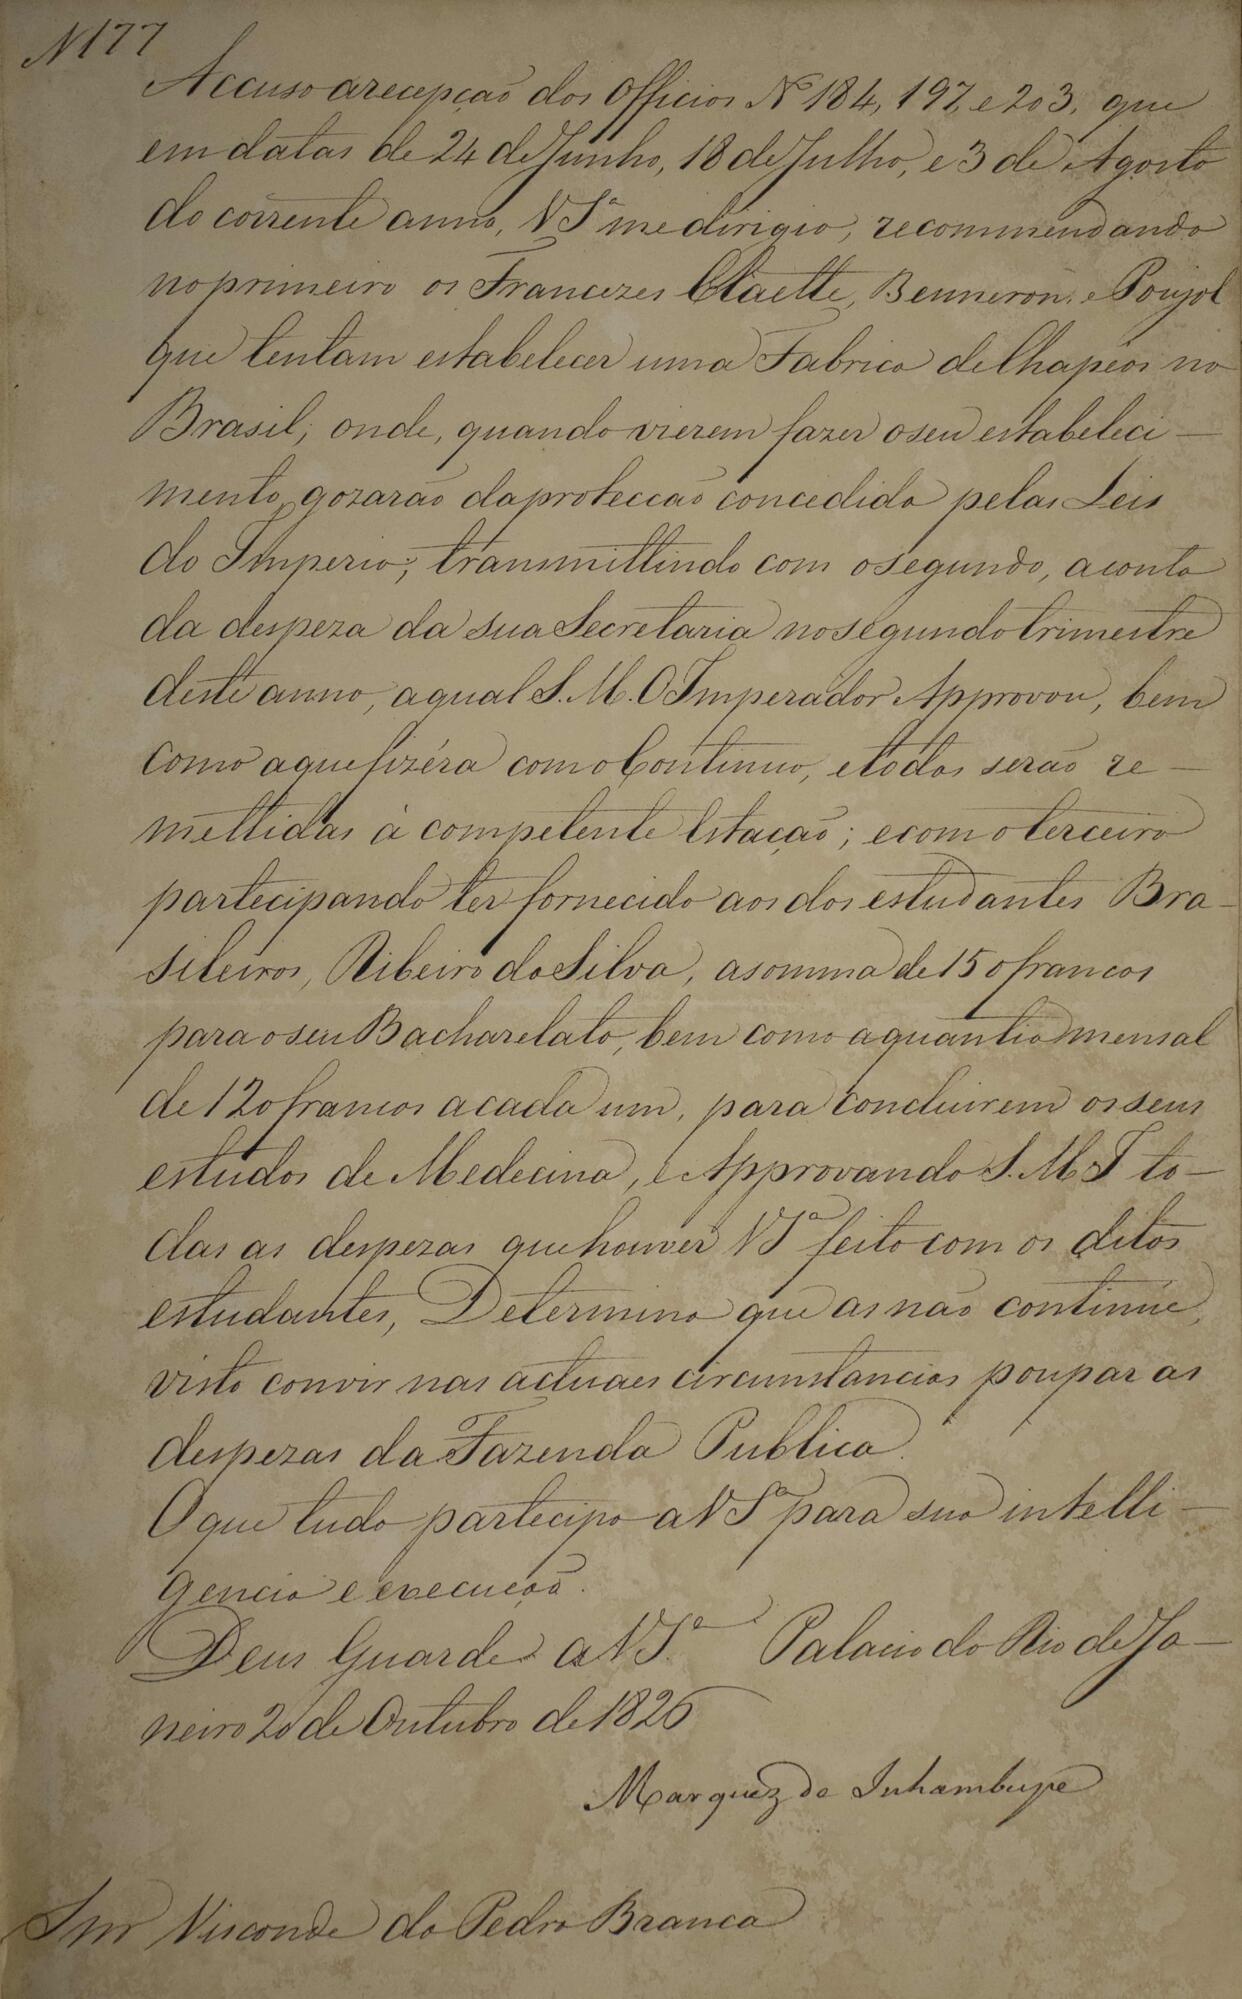 N 177
Accuso a recepção dos Officios Nº 184, 197, e 203, que
em datas de 24 de Junho, 18 de Julho, e 3 de Agosto
do corrente anno, VSª me dirigio, recommendando
no primeiro os Francezes Claette, Benneron, e Poujol
que tentam estabelecer uma Fabrica de Chapeos no
Brasil; onde, quando vierem fazer o seu estabeleci-
mento, gozarão da protecção concedida pelas Leis
do Imperio; transmittindo com o segundo, a conta
da despeza da sua Secretaria no segundo trimestre
deste anno, a qual S. M. O Imperador Approvou, bem
como a que fizéra com o Continuo, e todas serão re-
mettidas á competente Estação; e com o terceiro
partecipando ter fornecido aos dos estudantes Bra-
sileiros, Ribeiro da Silva, a somma de 150 francos
para o seu Bacharelato, bem como a quantia mensal
de 120 francos a cada um, para concluirem os seus
estudos de Medecina, e Approvando S. M. I. to-
das as despezas que houver VSª feito com os ditos
estudantes, Determina que as não continúe,
visto convir nas actuaes circumstancias poupar as
despezas da Fazenda Publica.
O que tudo partecipo a VSª para sua intelli-
gencia e execução.
Deus Guarde a VSª Palacio do Rio de Ja-
neiro 20 de Outubro de 1826
Marquez de Inhambupe
Snr Visconde da Pedra Branca